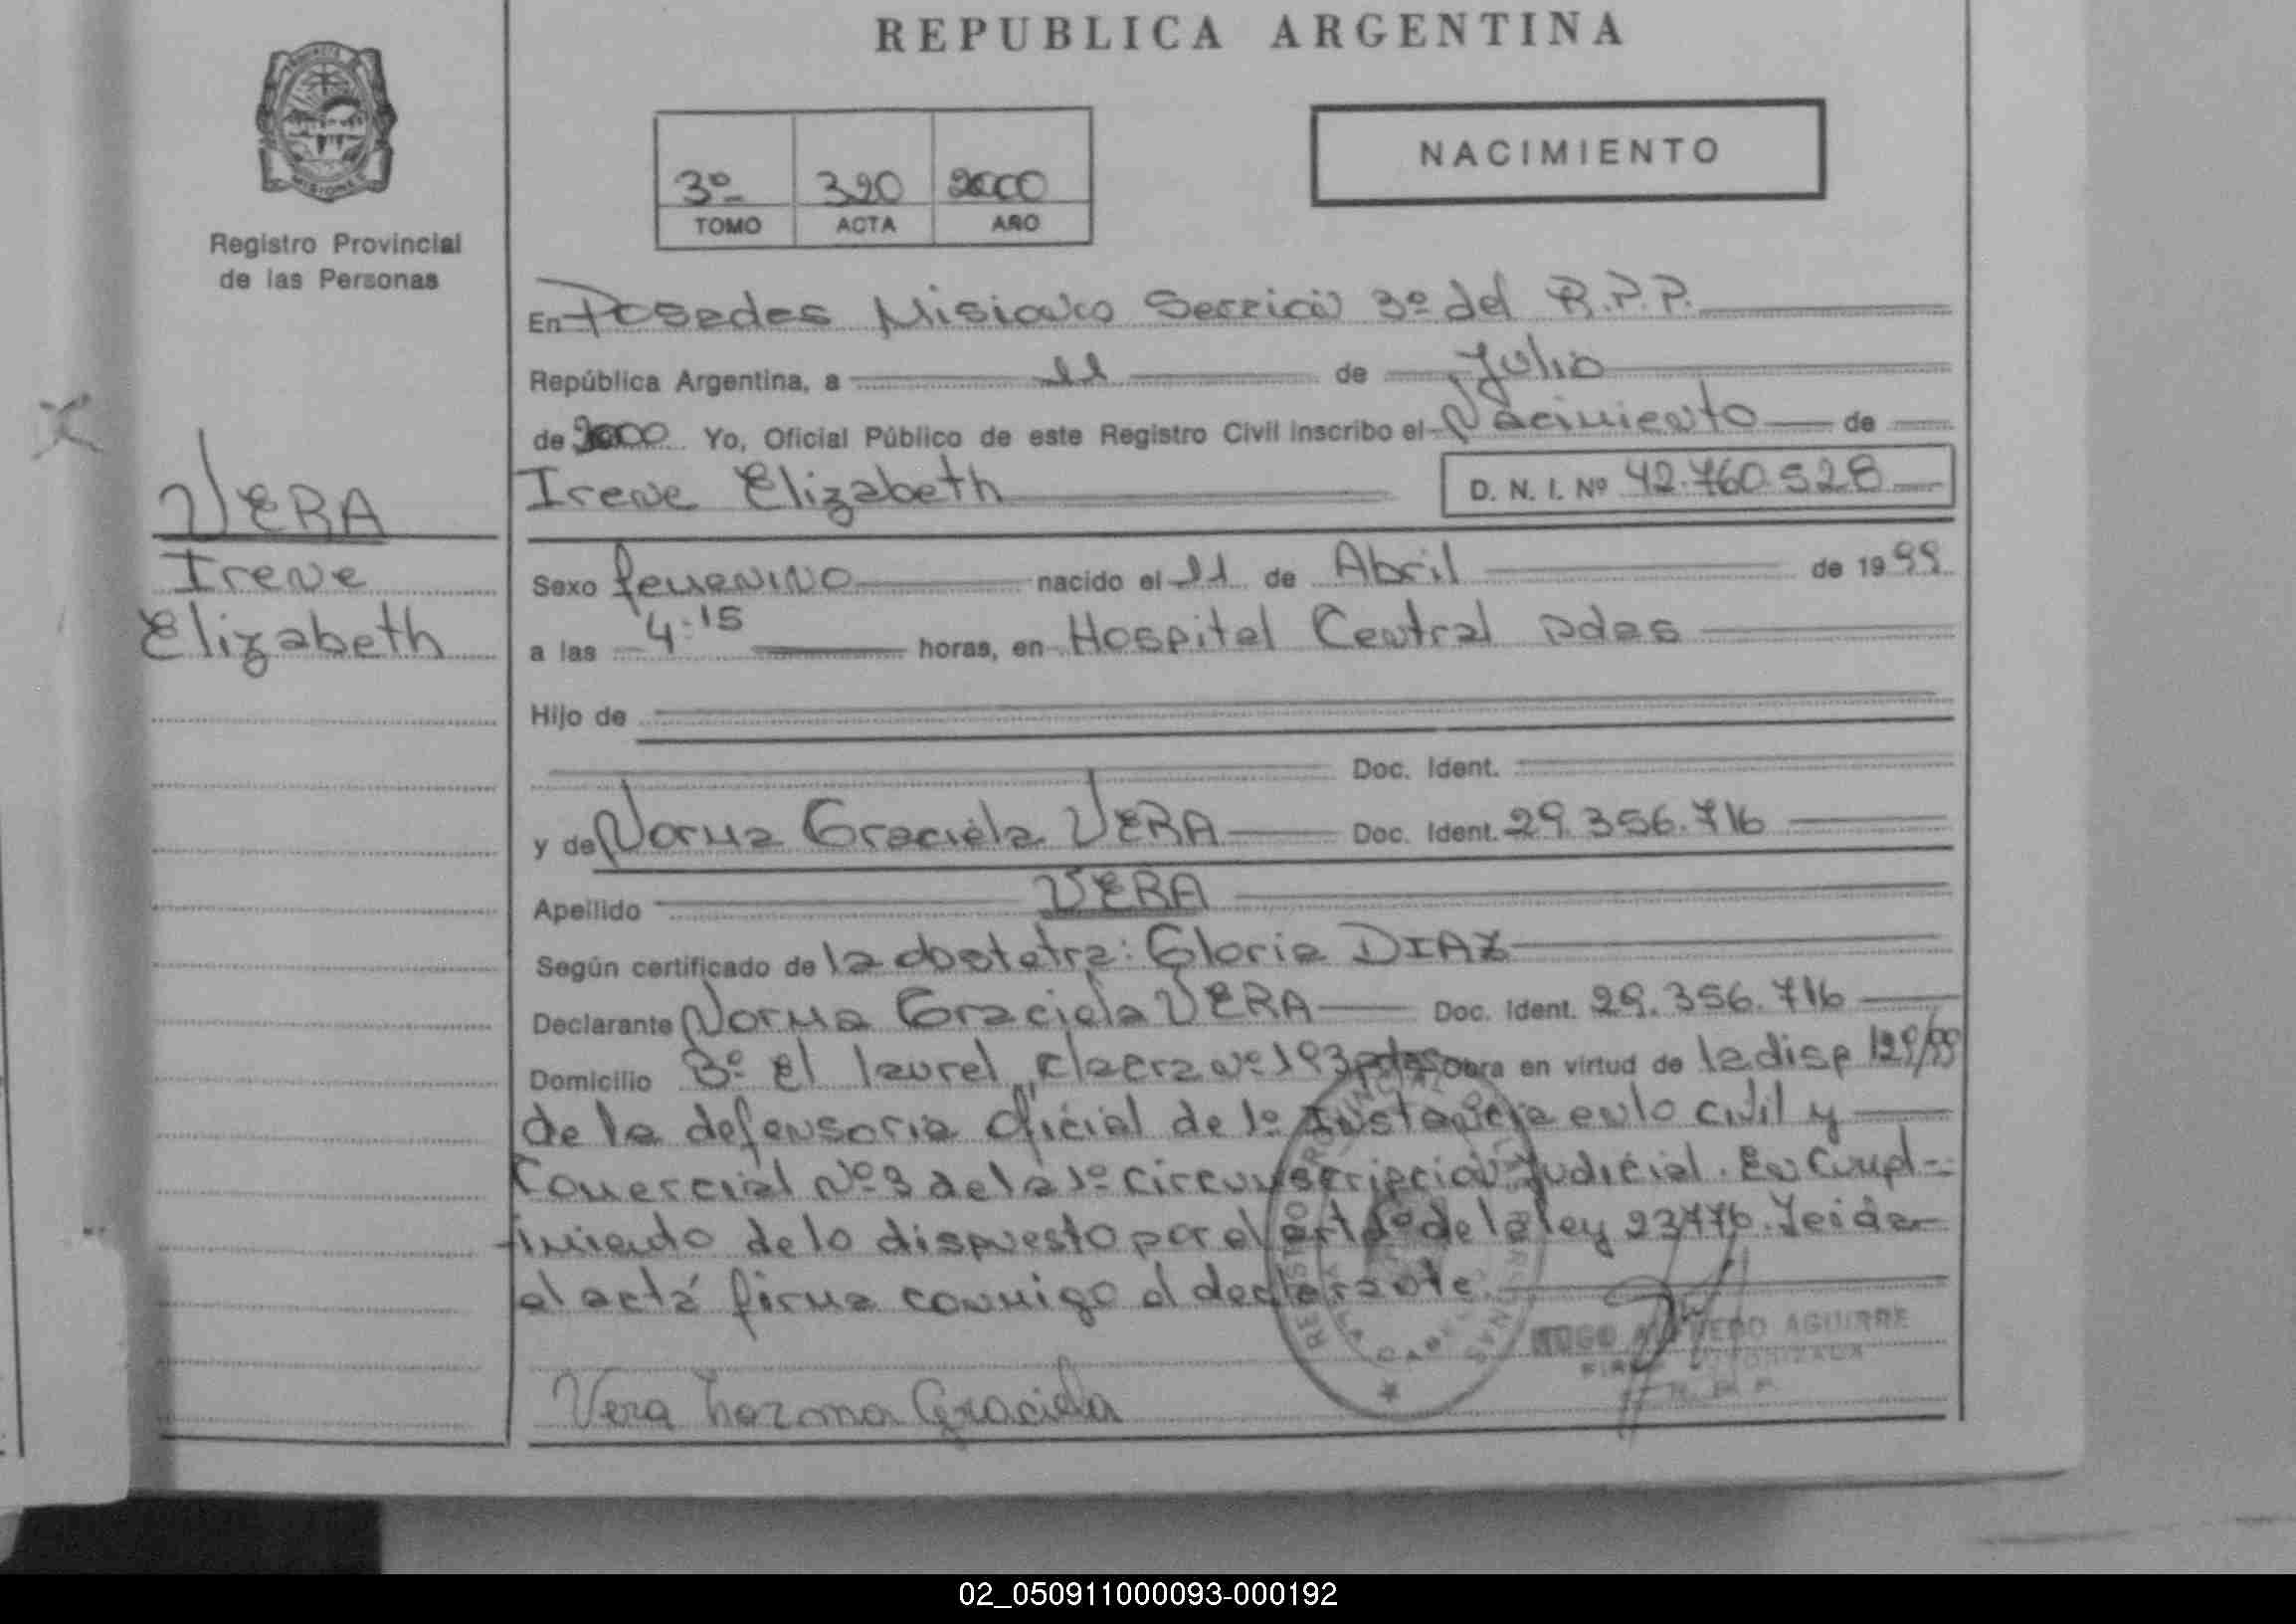 REPUBLICA ARGENTINA
NACIMIENTO
3º 320 2000
TOMO ACTA AÑO
Registro Provincial
de las Personas
En Posadas Misiones Sección 3º del R.P.P.
República Argentina, a 11 de Julio
de 2000 Yo, Oficial Público de este Registro Civil inscribo el Nacimiento de
Irene Elizabeth D. N. I. Nº 42.760.528
VERA
Irene
Elizabeth
Sexo femenino nacido el 11 de Abril de 1999
a las 4:15 horas, en Hospital Central pdas
Hijo de
Doc. Ident.
y de Norma Graciela VERA Doc. Ident. 29.356.716
Apellido VERA
Según certificado de la obstetra: Gloria DIAZ
Declarante Norma Graciela VERA Doc. Ident. 29.356.716
Domicilio Bº El laurel, chacra nº 193 pdas Obra en virtud de la disp 129/99
de la defensoria Oficial de 1º Instancia en lo civil y
Comercial Nº 3 de la 1º circunscripción Judicial. En Cumpl-
imiento de lo dispuesto por el art de la ley 23776. Leida
el acta firma conmigo el declarante.
HUGO ALFREDO AGUIRRE
FIRMA AUTORIZADA
R.P.P.
Vera Norma Graciela
02_050911000093-000192